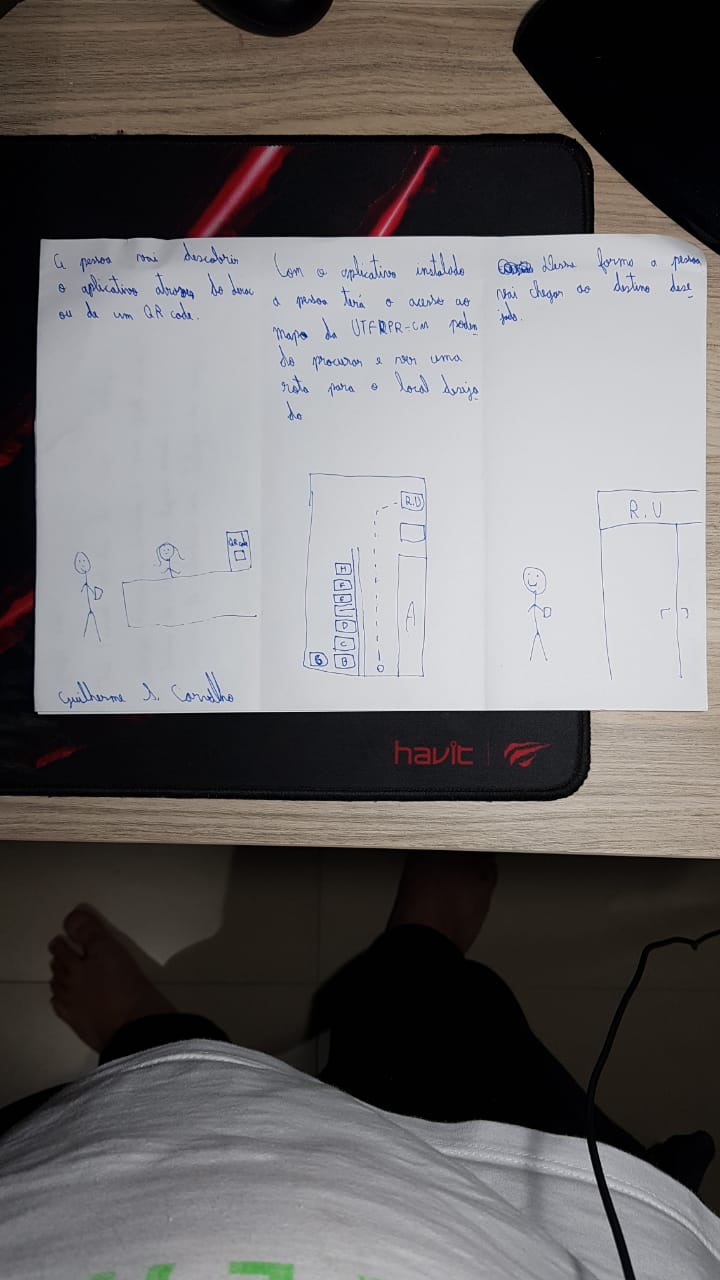 A pessoa vai descobrir
o aplicativo através do derac
ou de um QR code.
Guilherme S. Carvalho
QR code
Com o aplicativo instalado
a pessoa terá o acesso ao
mapa da UTFRPR-CM poden
do procurar e ver uma
rota para o local deseja
do
R.U
H
F
E
D
C
B
G
A
Dessa forma a pessoa
vai chegar ao destino dese
jado.
R.U
havit